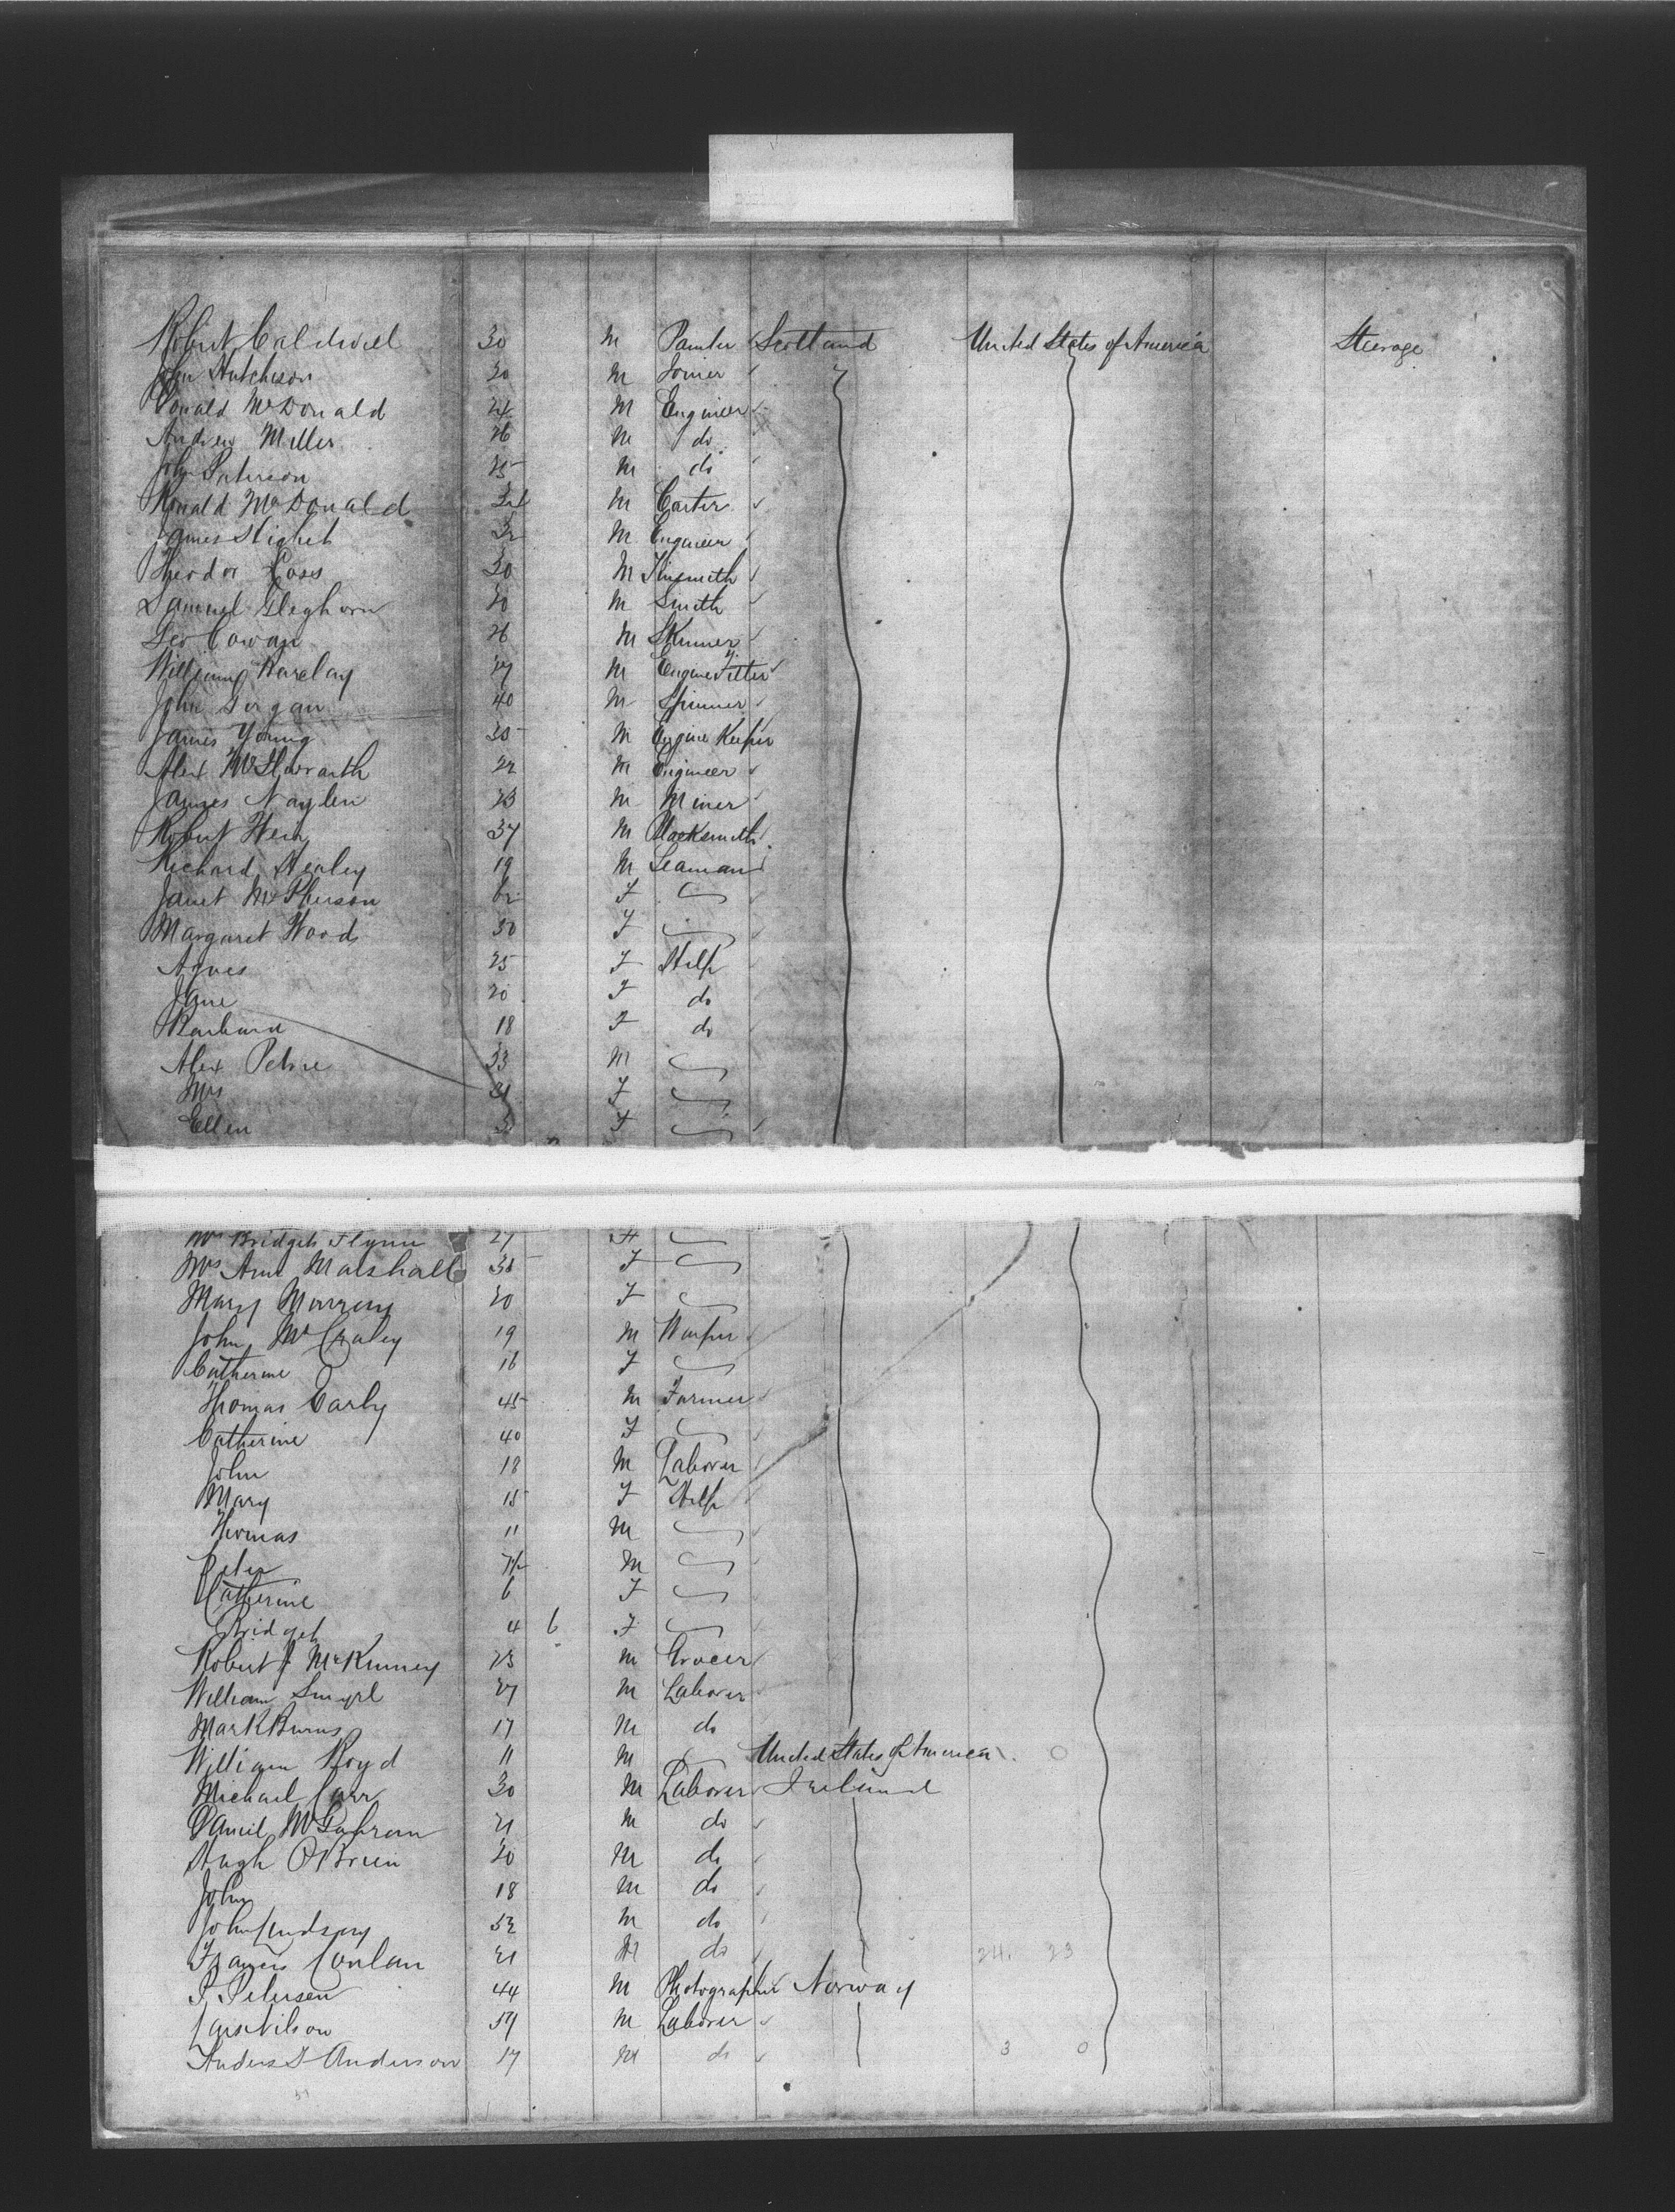 Robert Caldwell 30 M Painter Scotland United States of America Steerage
John Hutchison 20 M Joiner
Donald McDonald 24 M Engineer
Andrew Miller 26 M do
John Paterson 25 M do
Ronald McDonald M Carter
James Hight 32 M Engineer
Theodor 30 M Tinsmith
Samuel Gleghorn 20 M Smith
Geo Cowan 26 M Skinner
William Barclay 27 M Engine Fitter
John Gergan 40 M Spinner
James Young 35 M Engine Keeper
Alex McIlwraith 22 M Engineer
James 23 M Miner
Robert Weir 37 M Blacksmith
Richard Healey 19 M Seaman
Janet McPherson 62 F
Margaret Woods 30 F
Agnes 25 F Help
Jane 20 F do
Barbara 18 F do
Alex Petrie 33 M
Mrs 31 F
Ellen F
Mrs Bridget Flynn 27 F
Mrs Ann Marshall F
Mary Murray 20 F
John McCraley 19 M
Catherine 16 F
Thomas Early 45 M Farmer
Catherine 40 F
John 18 M Laborer
Mary 15 F Help
Thomas 11 M
Peter M
Catherine 6 F
Bridget 4 6 F
Robert J McKinney 23 M Grocer
William Smyrl 27 M Laborer
Mark Burns 17 M do
William Boyd 11 M United States of America 0
Michael Carr 30 M Laborer Ireland
Daniel McGahran 21 M do
Hugh O'Brien 20 M do
John 18 M do
John Lindsay 52 M do
Francis Conlan 21 M do 24. 23
P. Petersen 44 M Photographer Norway
Lars Nilson M Laborer
Anders S Anderson 17 M do 3 0